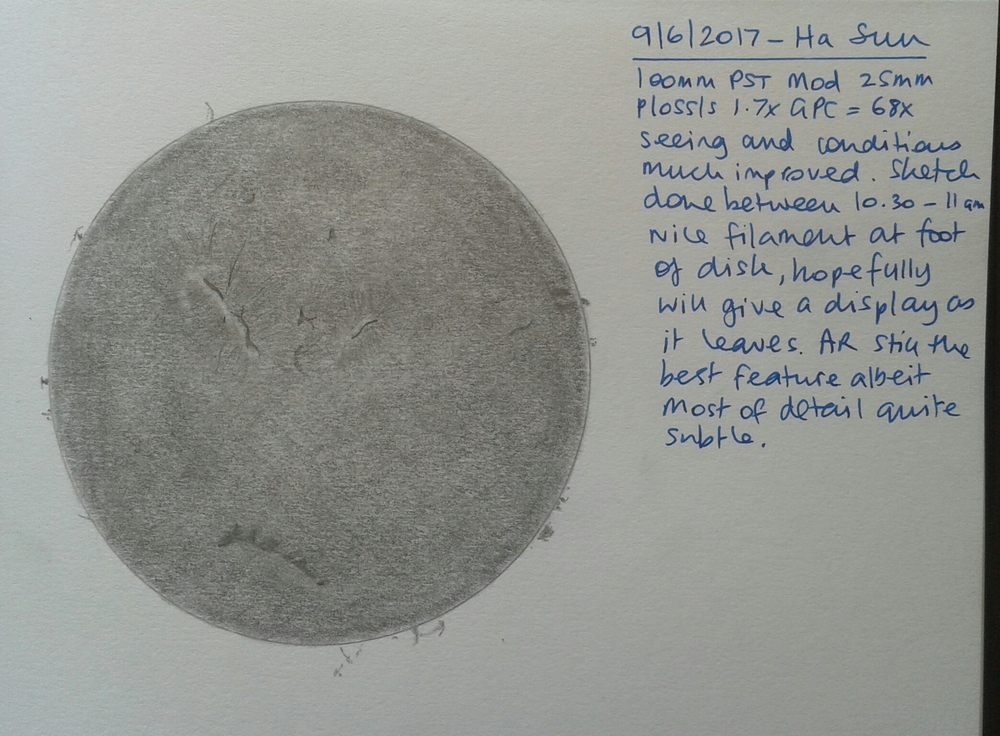 9/6/2017 - Ha Sun
100mm PST Mod 25mm
plossls 1.7x GPC = 68x
seeing and conditions
much improved. Sketch
done between 10.30 - 11am
Nice filament at foot
of disk, hopefully
will give a display as
it leaves. AR still the
best feature albeit
most of detail quite
subtle.